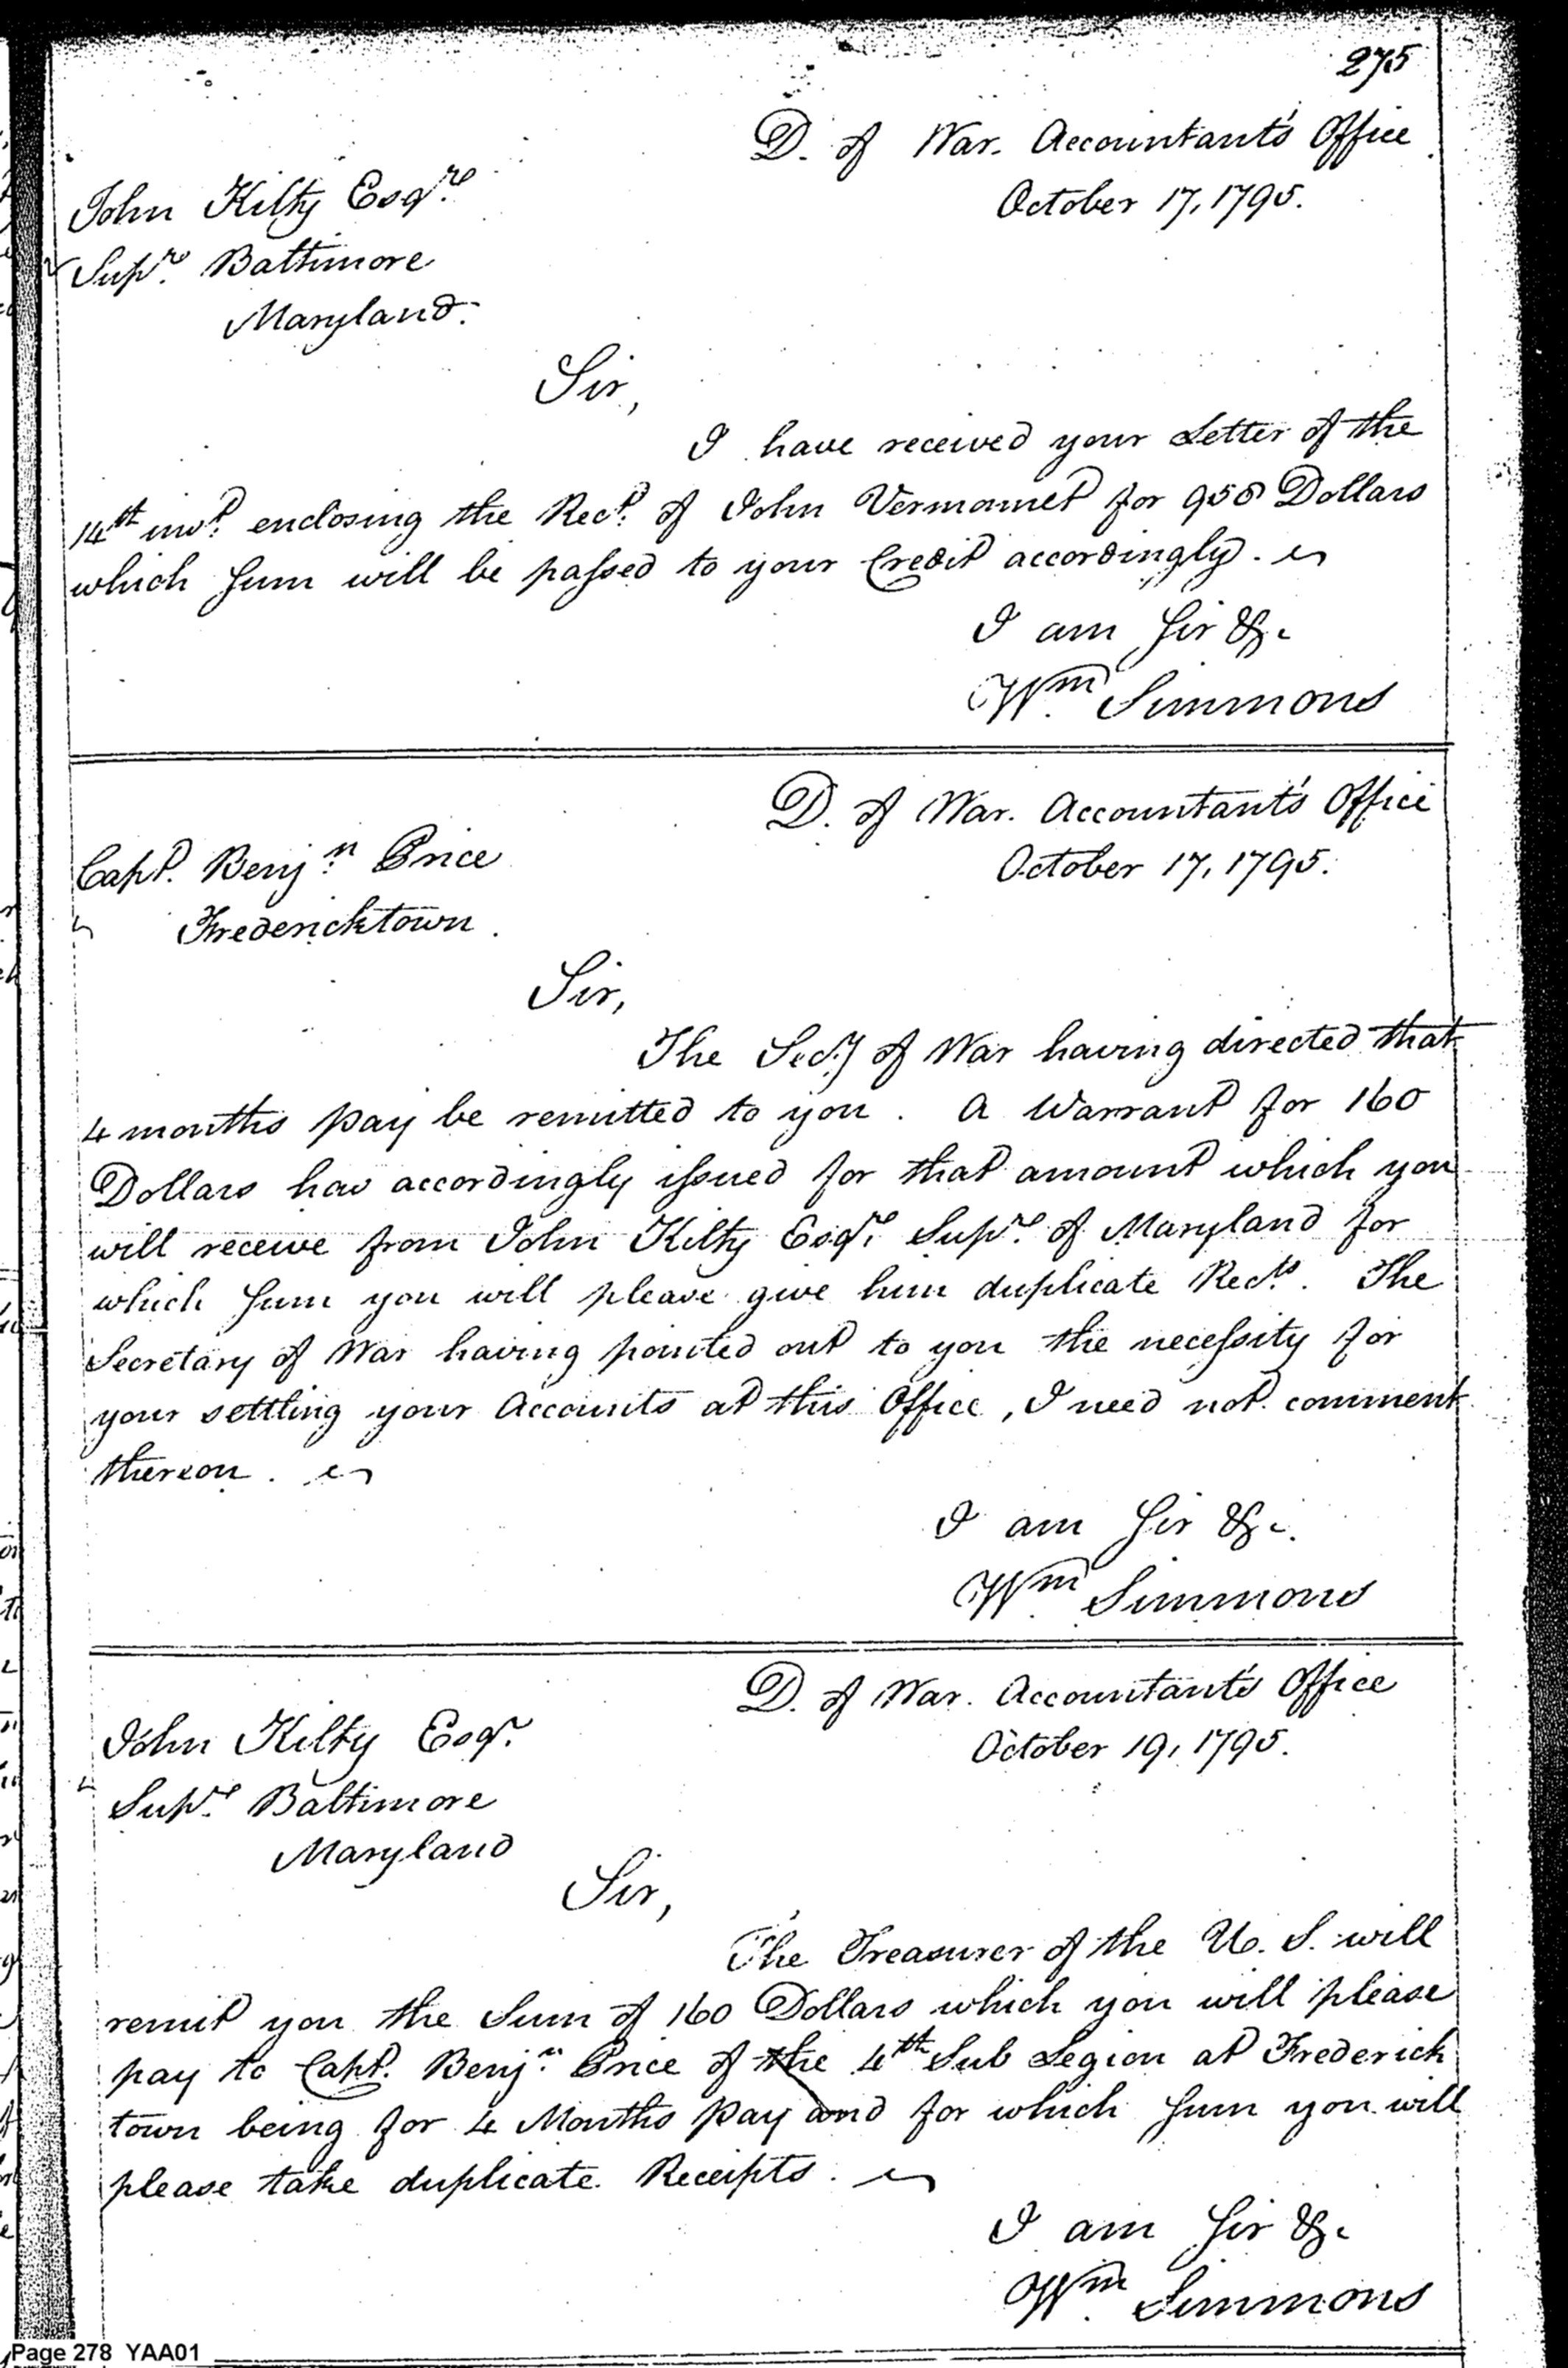 275
D. of War. Accountant's Office
October 17, 1795.
John Kilty Esqre
Supre. Baltimore
Maryland.
Sir,
I have received your Letter of the
14th inst. enclosing the Rect. of John Vermomet for 958 Dollars
which sum will be passed to your Credit accordingly.
I am Sir &c
Wm. Simmons
D. of War. Accountant's Office
October 17, 1795.
Capt. Benjn. Price
Fredericktown.
Sir,
The Secy of War having directed that
4 months pay be remitted to you. A Warrant for 160
Dollars has accordingly issued for that amount which you
will receive from John Kilty Esqre Supre. of Maryland for
which sum you will please give him duplicate Rects. The
Secretary of War having pointed out to you the necessity for
your settling your Accounts at this Office, I need not comment
thereon.
I am Sir &c.
Wm. Simmons
D. of War. Accountant's Office
October 19, 1795.
John Kilty Esqr.
Supre. Baltimore
Maryland
Sir,
The Treasurer of the U. S. will
remit you the Sum of 160 Dollars which you will please
pay to Capt. Benjn. Price of the 4th Sub Legion at Frederick
town being for 4 Months pay and for which sum you will
please take duplicate Receipts.
I am Sir &c
Wm. Simmons
Page 278 YAA01